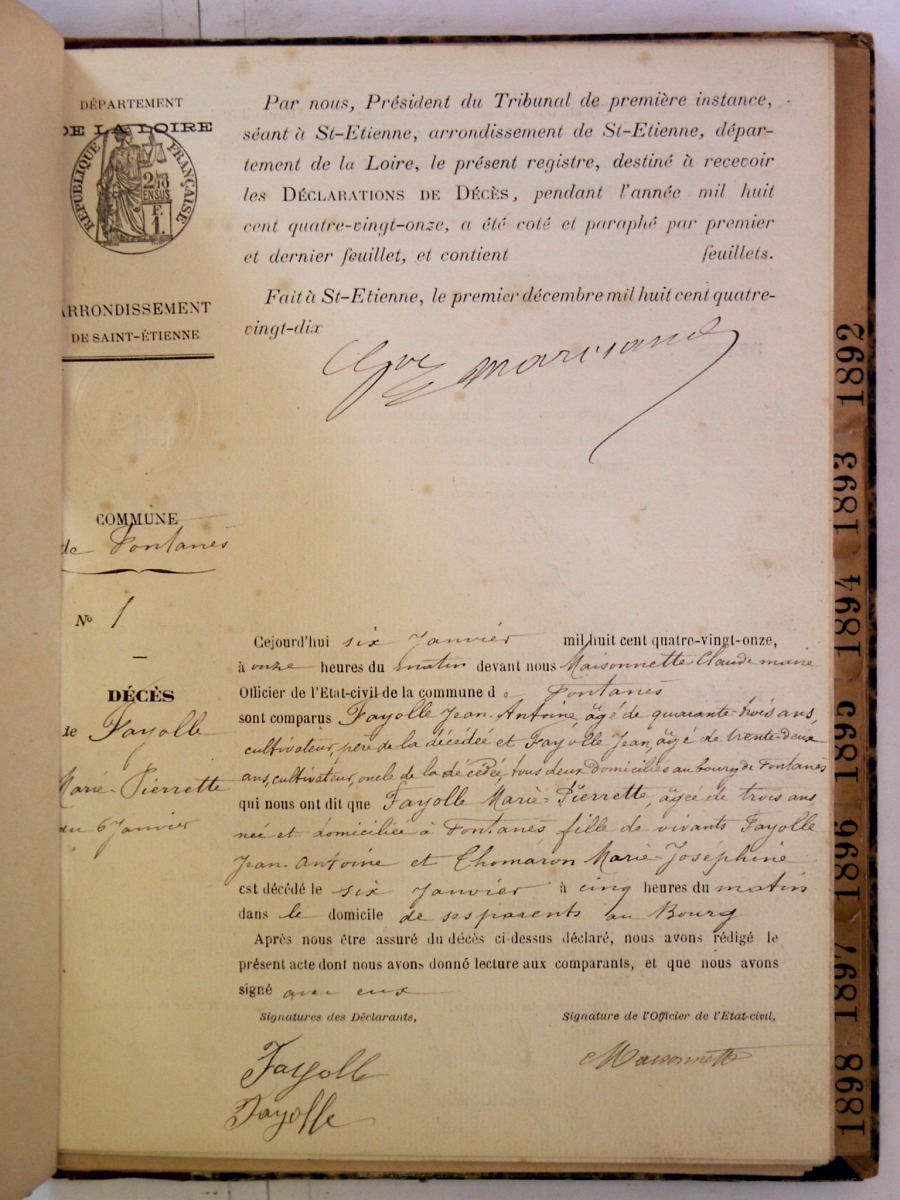 DÉPARTEMENT
DE LA LOIRE
RÉPUBLIQUE FRANÇAISE
2/10
EN SUS
F.
1.
ARRONDISSEMENT
DE SAINT-ÉTIENNE
Par nous, Président du Tribunal de première instance,
séant à St-Etienne, arrondissement de St-Etienne, dépar-
tement de la Loire, le présent registre, destiné à recevoir
les DÉCLARATIONS DE DÉCÈS, pendant l'année mil huit
cent quatre-vingt-onze, a été coté et paraphé par premier
et dernier feuillet, et contient feuillets.
Fait à St-Etienne, le premier décembre mil huit cent quatre-
vingt-dix
COMMUNE
de Fontanès
No 1
DÉCÈS
de Fayolle
Marie-Pierrette
du 6 Janvier
Cejourd'hui six Janvier mil huit cent quatre-vingt-onze,
à onze heures du matin devant nous Maisonnette Claude maire
Officier de l'Etat-civil de la commune de Fontanès
sont comparus Fayolle Jean-Antoine, âgé de quarante-trois ans,
cultivateur, père de la décédée et Fayolle Jean, âgé de trente-deux
ans, cultivateur, oncle de la décédée, tous deux domiciliés au bourg de Fontanès
qui nous ont dit que Fayolle Marie-Pierrette, âgée de trois ans
née et domiciliée à Fontanès fille de vivants Fayolle
Jean-Antoine et Thomaron Marie-Joséphine
est décédé le six Janvier à cinq heures du matin
dans le domicile de ses parents au Bourg
Après nous être assuré du décès ci-dessus déclaré, nous avons rédigé le
présent acte dont nous avons donné lecture aux comparants, et que nous avons
signé avec eux
Signatures des Déclarants,
Signature de l'Officier de l'Etat-civil,
Fayolle
Fayolle
Maisonnette
1892 1893 1894 1895 1896 1897 1898